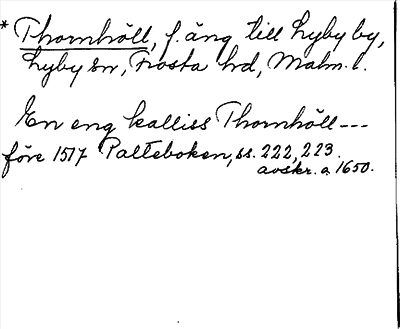 * Thornhöll, f. äng till Lyby by,
Lyby sn, Frosta hd, Malm. l.
En eng kalliss Thornhöll ---
före 1517 Palteboken, ss. 222, 223.
avskr. a. 1650.